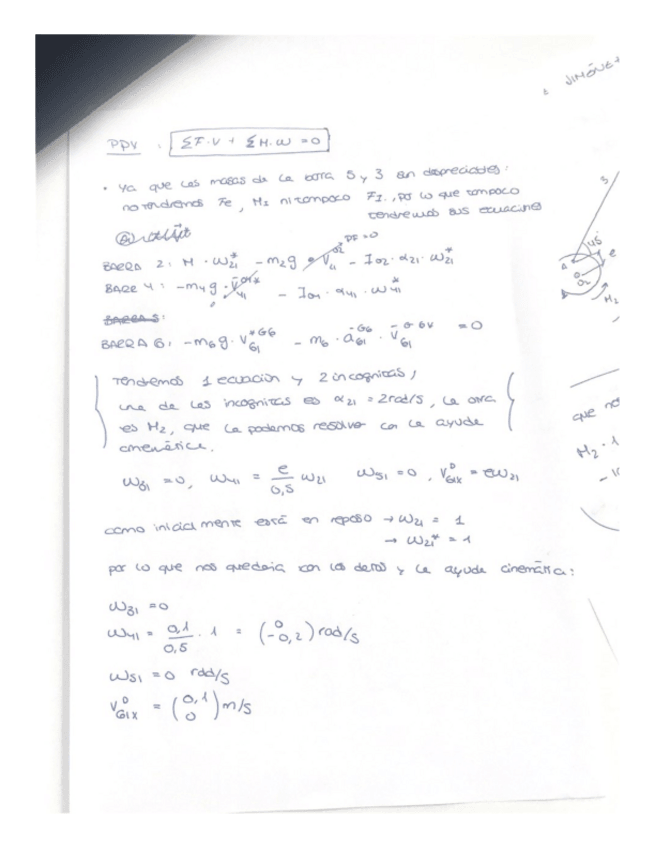 JIMÉNEZ
PPV : ΣF·V + ΣM·ω = 0
• Ya que las masas de la barra 5 y 3 son despreciables:
no tendremos Fe, M2 ni tampoco FI, por lo que tampoco
tendremos sus ecuaciones
BARRA 2: M · ω21* - m2g · V - I02 · α21 · ω21*
PF = 0
BARR 4: - m4g · V41 - I04 · α41 · ω41*
BARRA 5:
BARRA 6: - m6g · V61*G6 - m6 · a61G6 · V61 = 0
Tendremos 1 ecuación y 2 incognitas,
una de las incognitas es α21 = 2rad/s, la otra
es M2, que la podemos resolver con la ayuda
cinemática.
ω31 = 0, ω41 = e/0,5 ω21 ω51 = 0, V61x = eω21
como inicialmente está en reposo → ω21 = 1
→ ω21* = 1
por lo que nos quedaria con los datos y la ayuda cinemática:
ω31 = 0
ω41 = 0,1/0,5 · 1 = (0 -0,2) rad/s
ω51 = 0 rad/s
V61x = (0,1 0) m/s
3
45
A
e
O2
M2
que no
M2 · 1